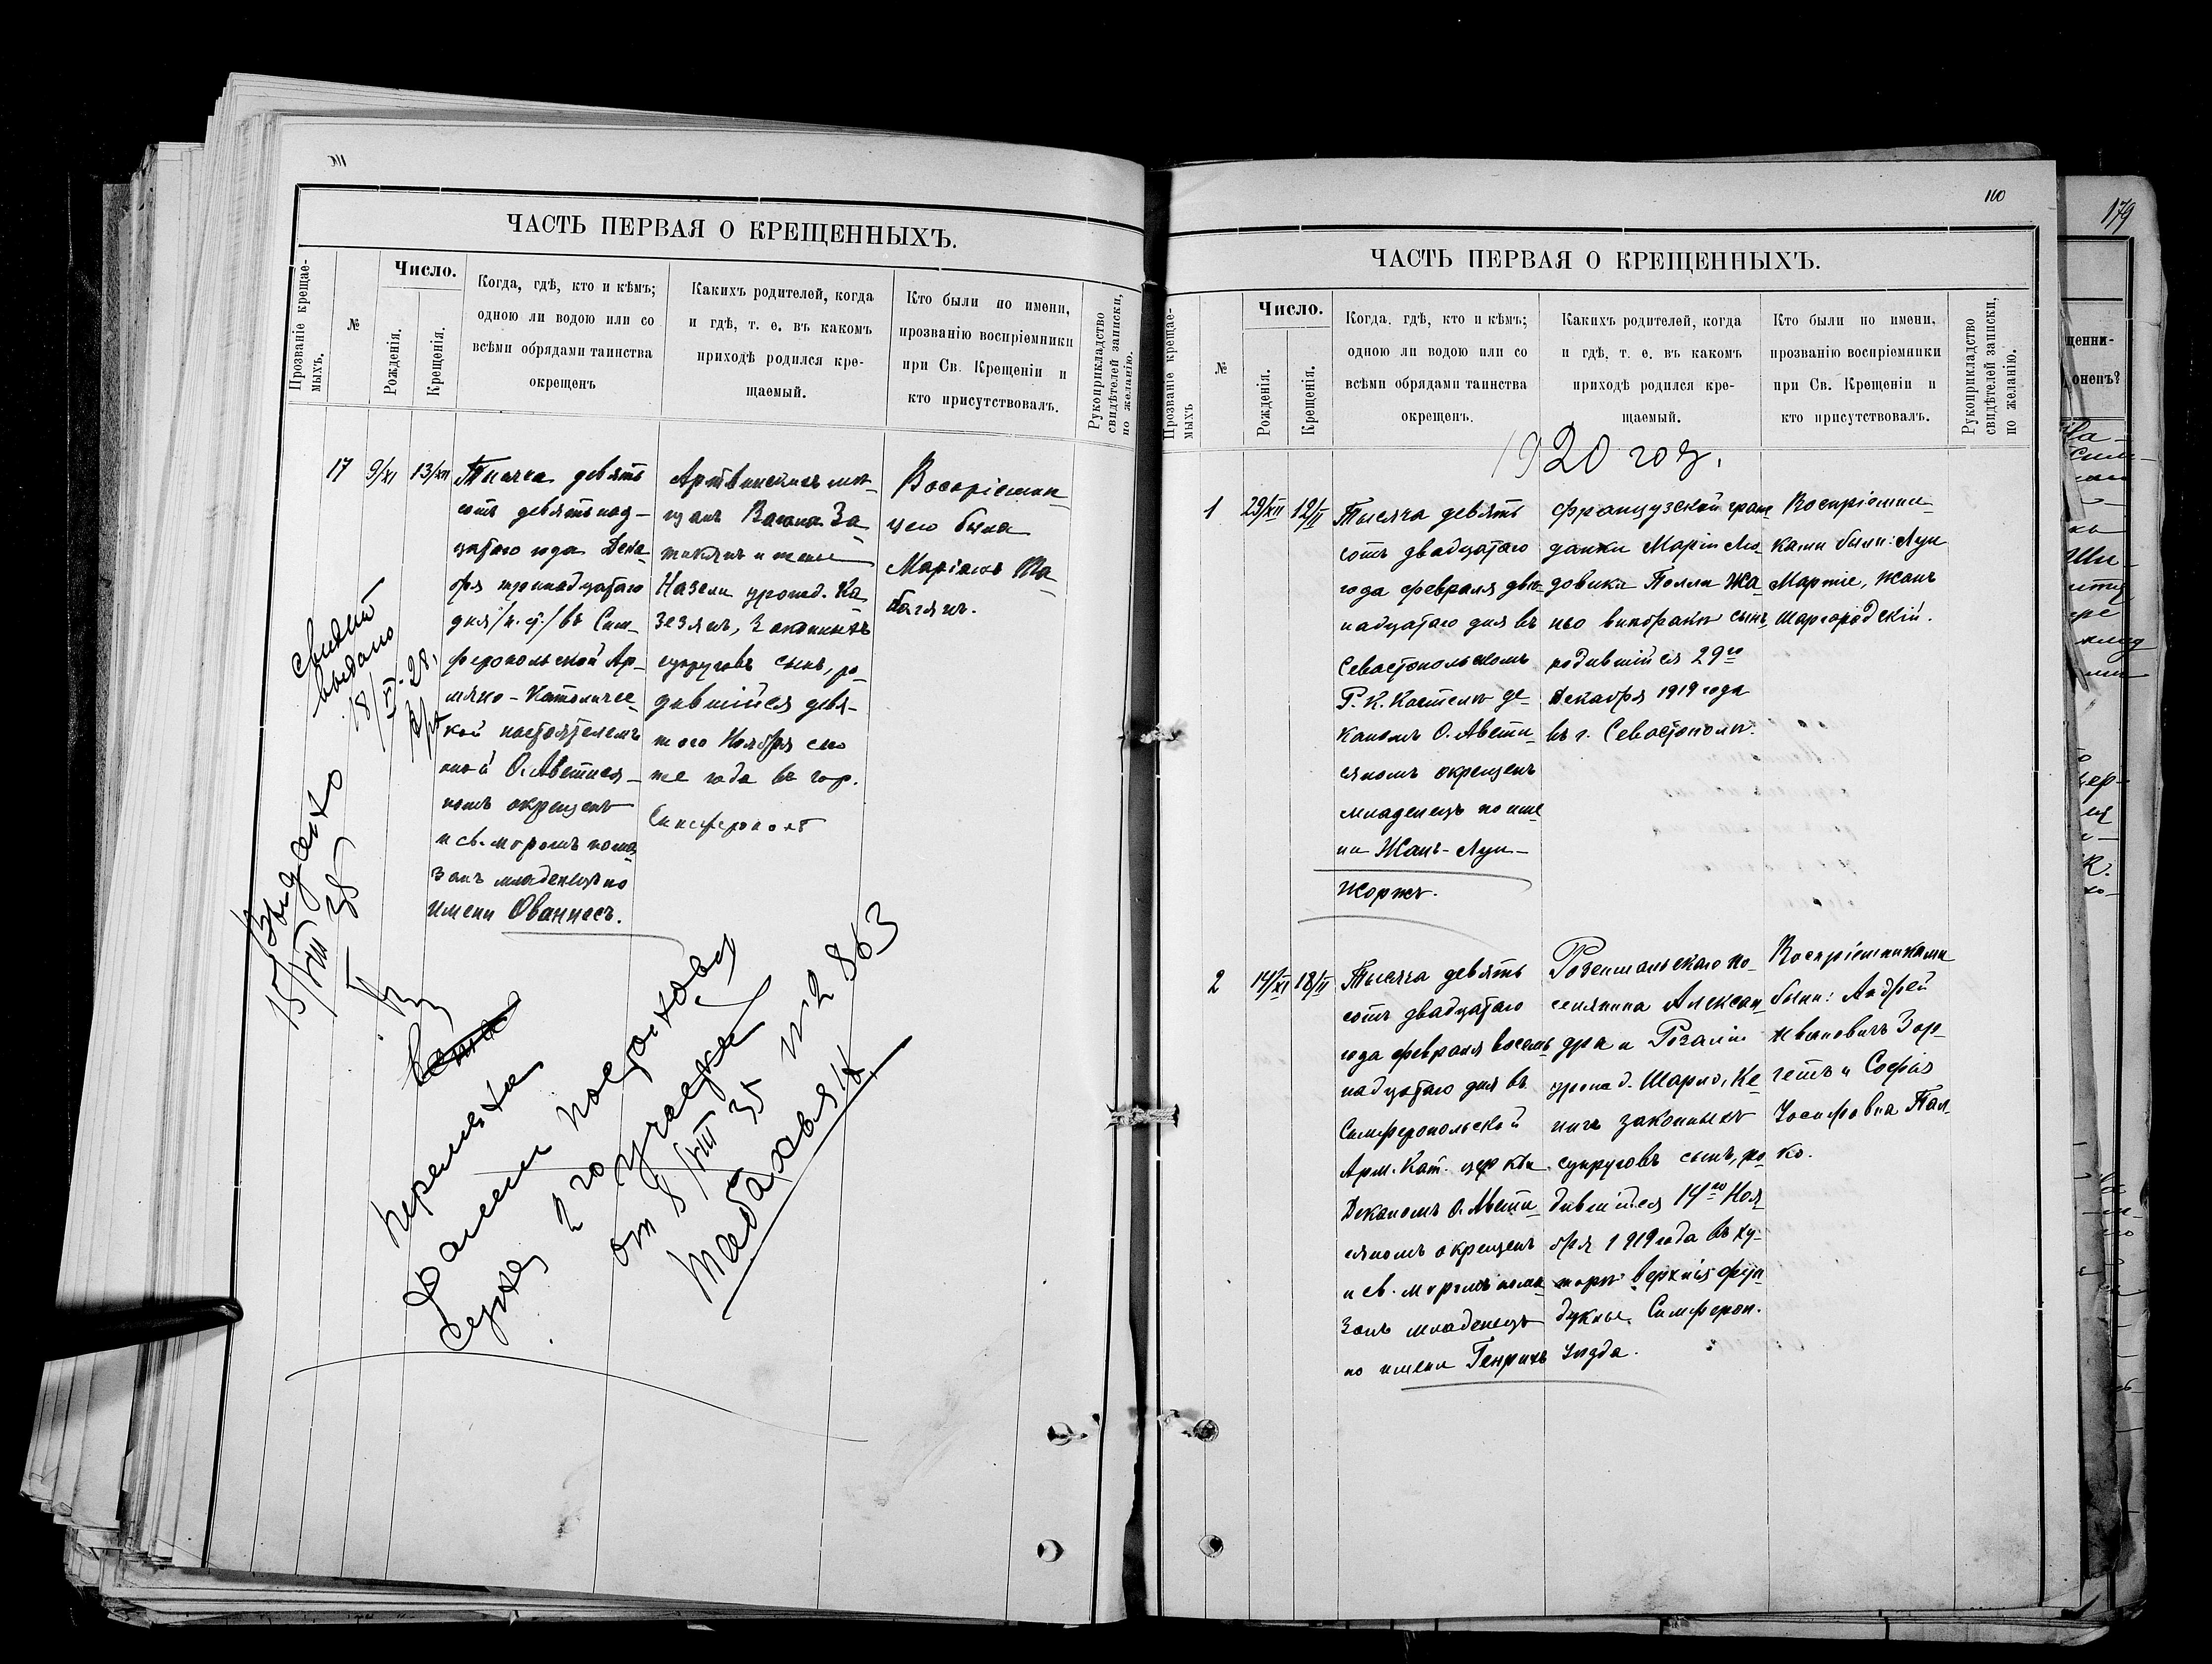 ЧАСТЬ ПЕРВАЯ О КРЕЩЕННЫХЪ.
Прозваніе крещае-
мыхъ.
№
Число.
Рожденія.
Крещенія.
Когда, гдѣ, кто и кѣмъ;
одною ли водою или со
всѣми обрядами таинства
окрещенъ
Какихъ родителей, когда
и гдѣ, т. е. въ какомъ
приходѣ родился кре-
щаемый.
Кто были по имени,
прозванію воспріемники
при Св. Крещеніи и
кто присутствовалъ.
Рукоприкладство
свидѣтелей записки,
по желанію.
17
9/XI
13/XII
Тысяча девять
сотъ девятьнад-
цатаго года Дека-
бря тринадцатаго
дня /н. с./ въ Сим-
феропольской Ар-
мяно-Католичес-
кой настоятелемъ
О. Аветися-
номъ окрещенъ
и св. мѵромъ пома-
занъ младенецъ по
имени Ованнесъ.
Артвинскихъ мѣ-
щанъ
и жены
Назели урожд. Ка-
зезянъ, законныхъ
супруговъ сынъ, ро-
дившійся девя-
того Ноября сего
же года въ гор.
Симферополѣ
Воспріемни-
цею была
Маріамъ Та-
багянъ.
выдано
18/XI-28.
Выдано
15/VIII 35
перемена
фамилии
2 го участка
от 8/VIII 35 № 2863
160
ЧАСТЬ ПЕРВАЯ О КРЕЩЕННЫХЪ.
Прозваніе крещае-
мыхъ
№
Число.
Рожденія.
Крещенія.
Когда, гдѣ, кто и кѣмъ;
одною ли водою или со
всѣми обрядами таинства
окрещенъ.
Какихъ родителей, когда
и гдѣ, т. е. въ какомъ
приходѣ родился кре-
щаемый.
Кто были по имени,
прозванію воспріемники
при Св. Крещеніи и
кто присутствовалъ.
Рукоприкладство
свидѣтелей записки,
по желанію.
1920 год.
1
29/XII
12/II
Тысяча девять
сотъ двадцатаго
года февраля двѣ-
надцатаго дня въ
Севастопольскомъ
Р. К. Костелѣ де-
каномъ О. Авети-
сяномъ окрещенъ
младенецъ по име-
ни Жанъ-Луи-
Жоржъ.
Французской граж-
данки Маріи Лю-
довики Полли Жа-
нно внѣбрачн. сынъ,
родившійся 29го
Декабря 1919 года
въ г. Севастополѣ.
Воспріемни-
ками были: Луи
Мартіе, Жанъ
Шаргородскій.
2
14/XI
18/II
Тысяча девять
сотъ двадцатаго
года февраля восем-
надцатаго дня въ
Симферопольской
Арм. Кат. церкви
Деканомъ О. Авети-
сяномъ окрещенъ
и св. мѵромъ пома-
занъ младенецъ
по имени Генрихъ
Розентальскаго по-
селянина Алексан-
дра и Розаліи
урожд. Шарло, Ке-
ничъ законныхъ
супруговъ сынъ, ро-
дившійся 14го Ноя-
бря 1919 года въ ху-
торѣ Верхнія Фун-
дуклы, Симфероп.
Уѣзда.
Воспріемниками
были: Андрей
Ивановичъ Зор-
гетъ и Софія
Іосифовна Пал-
ко.
179